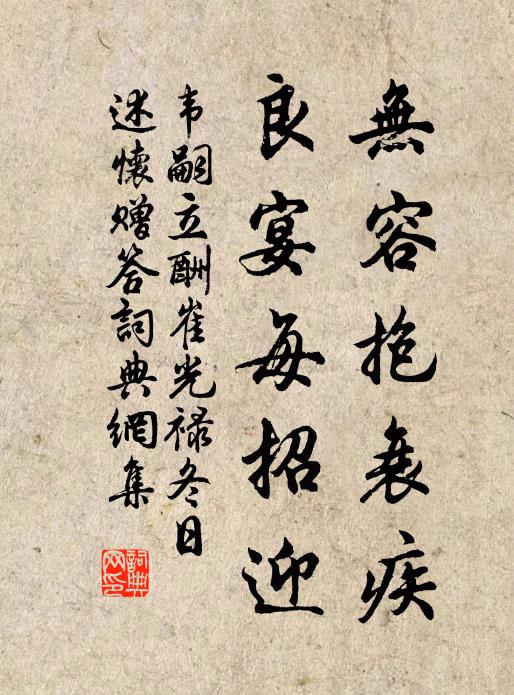 無容抱衰疾
良宴每招迎
韦嗣立酬崔光禄冬日
述懷赠答詞典網集
詞典
网印